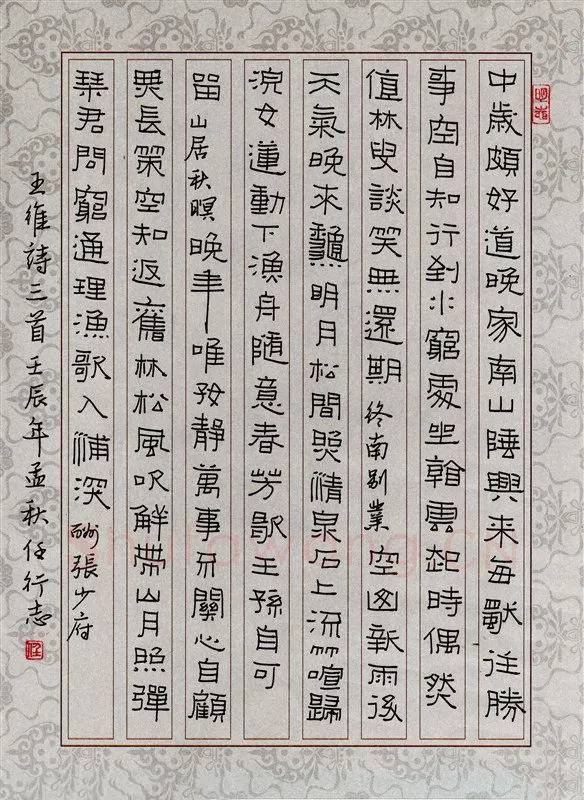 中歲頗好道晚家南山陲興来每獨往勝
事空自知行到水窮處坐看雲起時偶然
值林叟談笑無還期 終南别業 空山新雨後
天氣晚来龝明月松間照清泉石上流竹喧歸
浣女蓮動下漁舟隨意春芳歇王孫自可
留 山居秋暝 晚年唯好静萬事不關心自顧
無長策空知返舊林松風吹解帶山月照彈
琴君問窮通理漁歌入浦深 酬張少府
王維詩三首壬辰年孟秋任行志